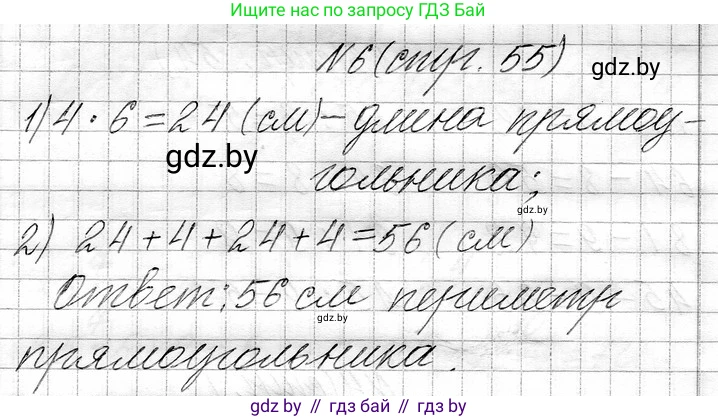 Ищите нас по запросу ГДЗ Бай
№6 (стр. 55)
gdz.by
1) 4 · 6 = 24 (см) – длина прямоу-
gdz.by
гольника;
gdz.by
2) 24 + 4 + 24 + 4 = 56 (см)
Ответ: 56 см периметр
gdz.by
прямоугольника.
gdz.by // гдз бай // gdz.by